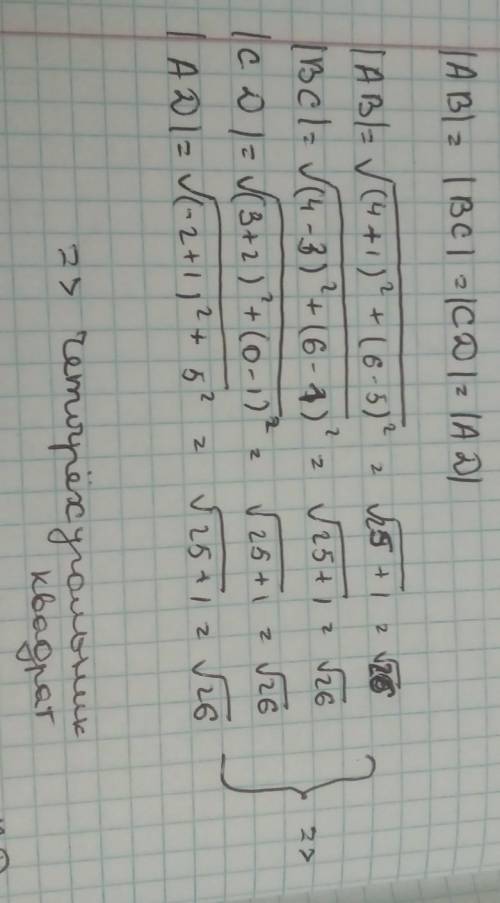 |AB| = |BC| = |CD| = |AD|
|AB| = √(4+1)² + (6-5)² = √25+1 = √26
|BC| = √(4-3)² + (6-1)² = √25+1 = √26
|CD| = √(3+2)² + (0-1)² = √25+1 = √26
|AD| = √(-2+1)² + 5² = √25+1 = √26
} =>
=> четырёхугольник
квадрат